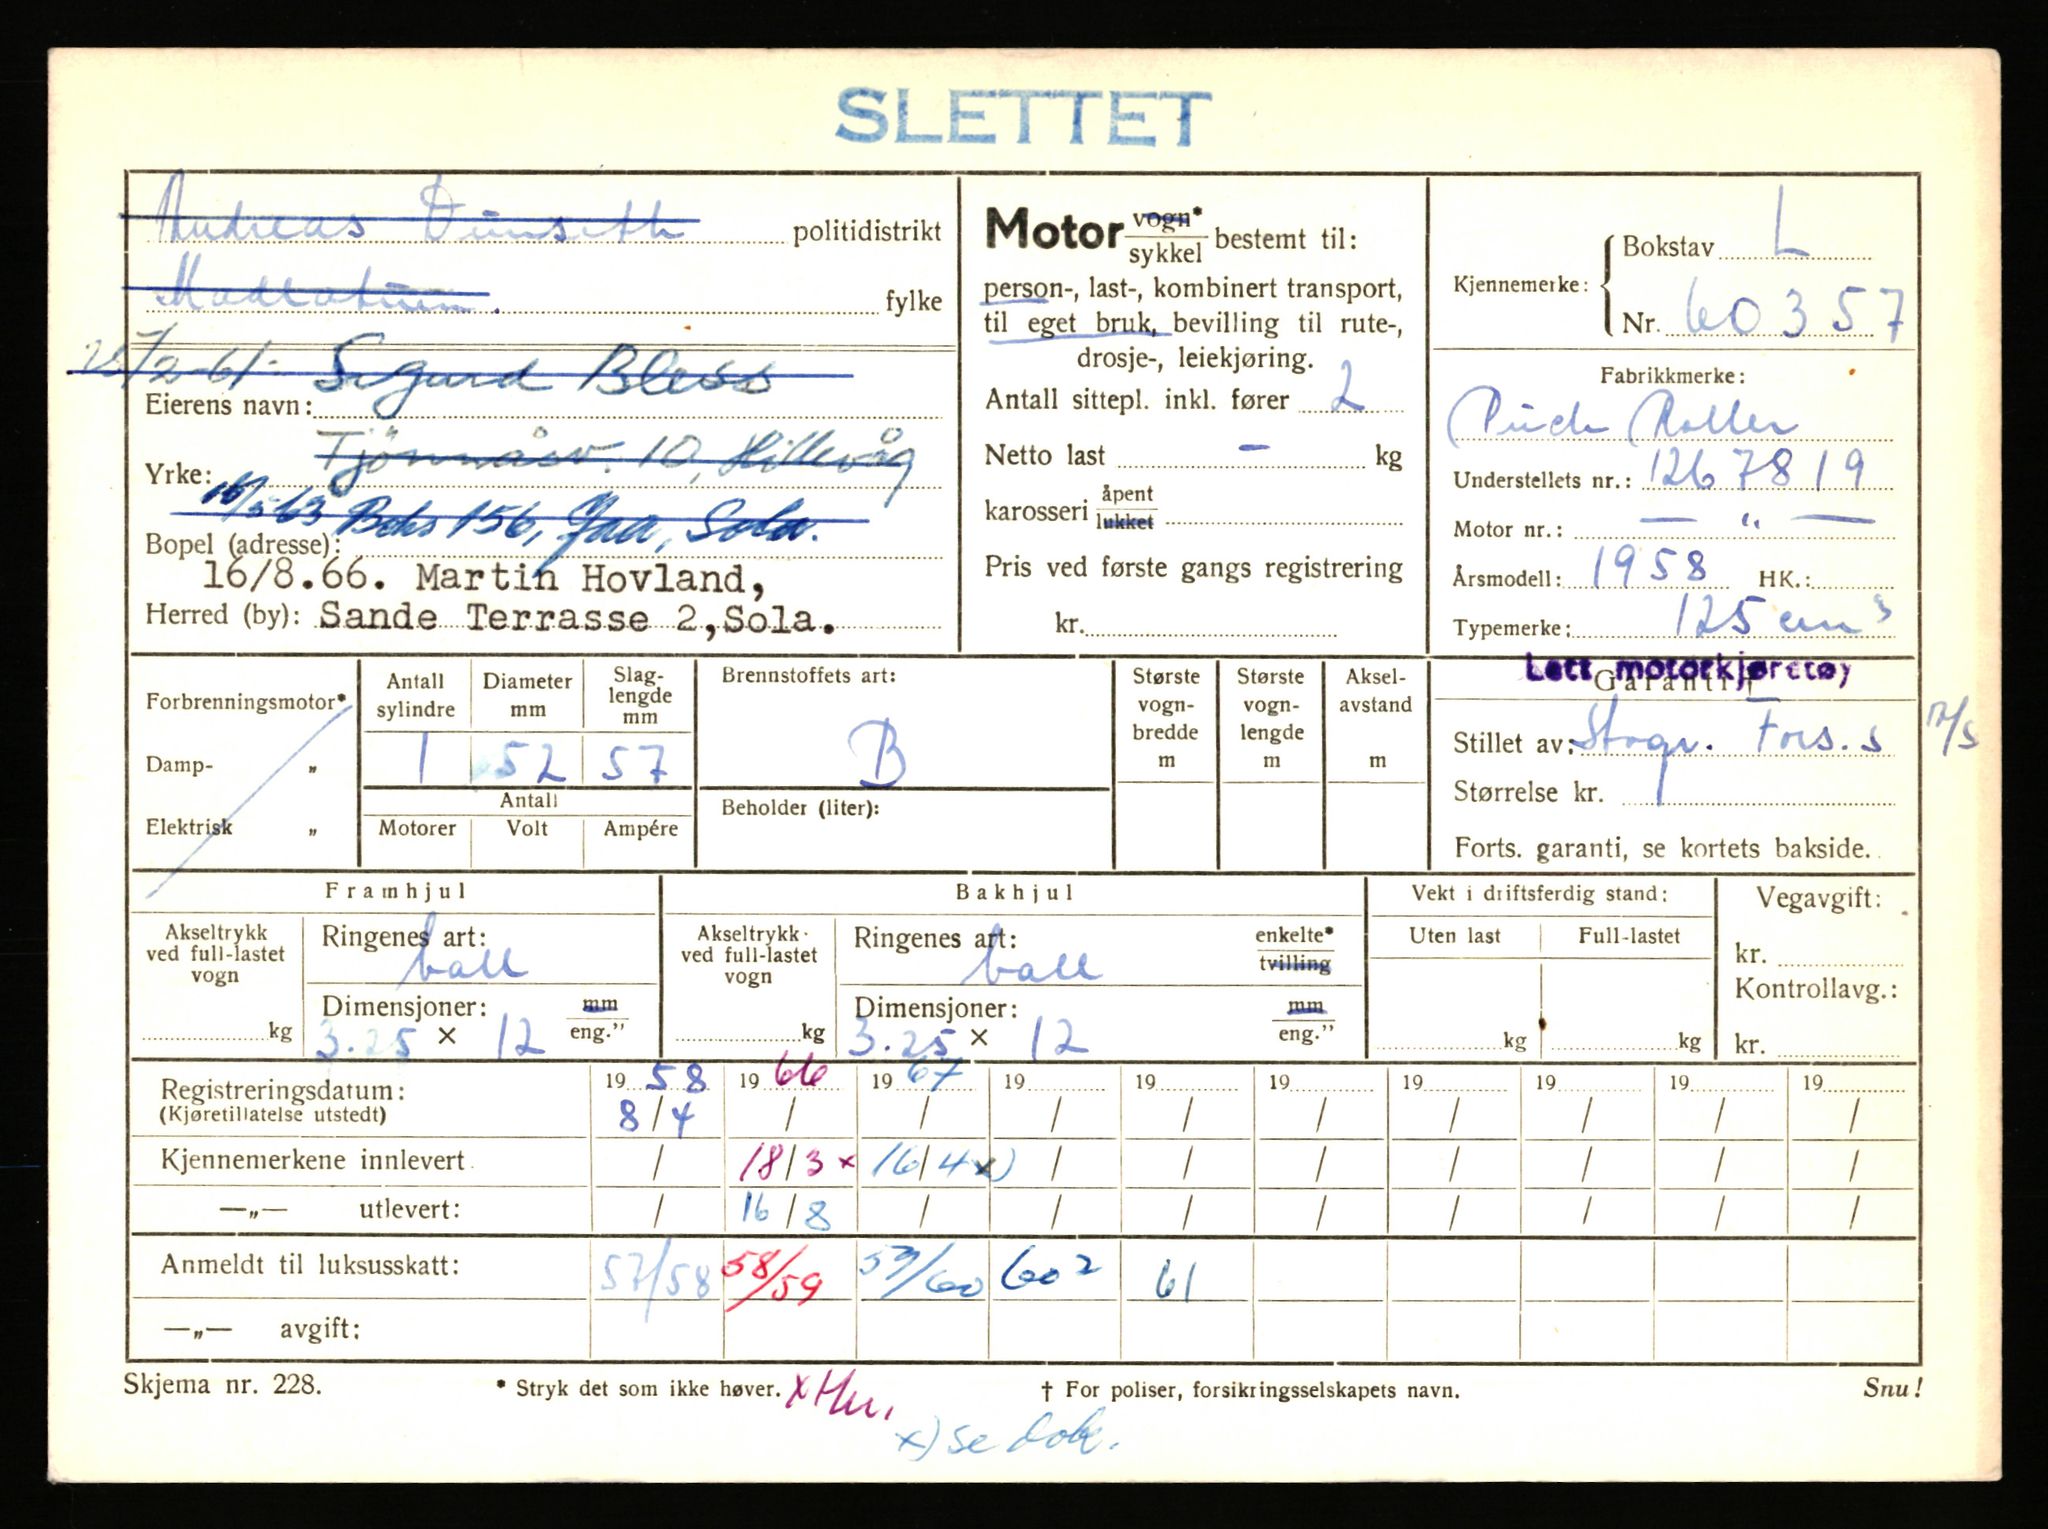 SLETTET
Andreas politidistrikt
fylke
Motor vogn*/sykkel bestemt til:
person-, last-, kombinert transport,
til eget bruk, bevilling til rute-,
drosje-, leiekjøring.
Antall sittepl. inkl. fører 2
Netto last – kg
karosseri åpent/lukket
Pris ved første gangs registrering
kr.
Kjennemerke: Bokstav L
Nr. 60357
Fabrikkmerke:
Puch Roller
Understellets nr.: 1267819
Motor nr.: — „ —
Årsmodell: 1958 HK.:
Typemerke: 125 cm³
Lett motorkjøretøy
/2-61- Sigurd Bless
Eierens navn:
Tjönnåsv. 10, Hillevåg
Yrke:
63 Boks 156, Sola.
Bopel (adresse):
16/8.66. Martin Hovland,
Herred (by): Sande Terrasse 2, Sola.
Garanti
Stillet av: Fors.s
Størrelse kr.
Forts. garanti, se kortets bakside.
Forbrenningsmotor*
Damp- „
Elektrisk „
Antall sylindre
Diameter mm
Slaglengde mm
1 52 57
Antall
Motorer Volt Ampére
Brennstoffets art:
B
Beholder (liter):
Største vognbredde m
Største vognlengde m
Akselavstand m
Framhjul
Akseltrykk ved full-lastet vogn
kg
Ringenes art: ball
Dimensjoner: mm/eng.”
3.25 × 12
Bakhjul
Akseltrykk ved full-lastet vogn
kg
Ringenes art: ball enkelte*/tvilling
Dimensjoner: mm/eng.”
3.25 × 12
Vekt i driftsferdig stand:
Uten last Full-lastet
kg kg
Vegavgift:
kr.
Kontrollavg.:
kr.
Registreringsdatum: 1958 1966 1967 19 19 19 19 19 19 19
(Kjøretillatelse utstedt) 8/4 / / / / / / / / /
Kjennemerkene innlevert / 18/3 x 16/4 x) / / / / / / /
—„— utlevert: / 16/8 / / / / / / / /
Anmeldt til luksusskatt: 57/58 58/59 59/60 60² 61
—„— avgift:
Skjema nr. 228. * Stryk det som ikke høver. x † For poliser, forsikringsselskapets navn. Snu!
x) se dok.